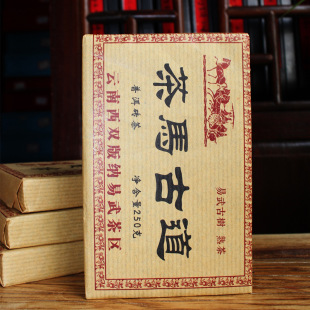 茶馬古道
易武古樹 熟茶
普洱砖茶
净含量250克
云南西双版纳易武茶区